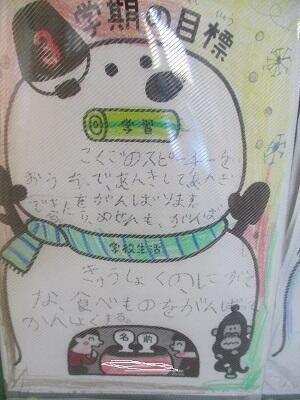 3学期の目標
学習
こくごのスピーチを
おうちで、あんきしてあんき
できたらがんばります
学校生活
きゅうしょくのにがて
な、食べものをがんばって
かんしょくする。
名前